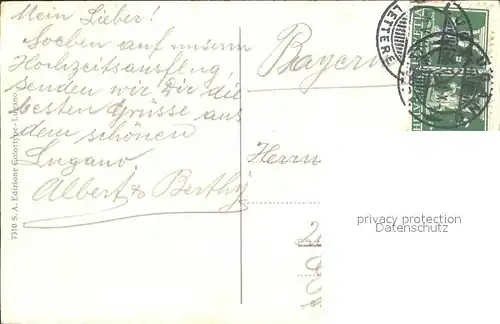 Mein Lieber!
Soeben auf unserm
Hochzeitsausflug,
senden wir Dir die
besten Grüsse aus
dem schönen
Lugano.
Albert & Berthy
Bayern
Herrn
LETTERE
HELVETIA
7310 S. A. Edizione Colortype - Lugano
privacy protection
Datenschutz